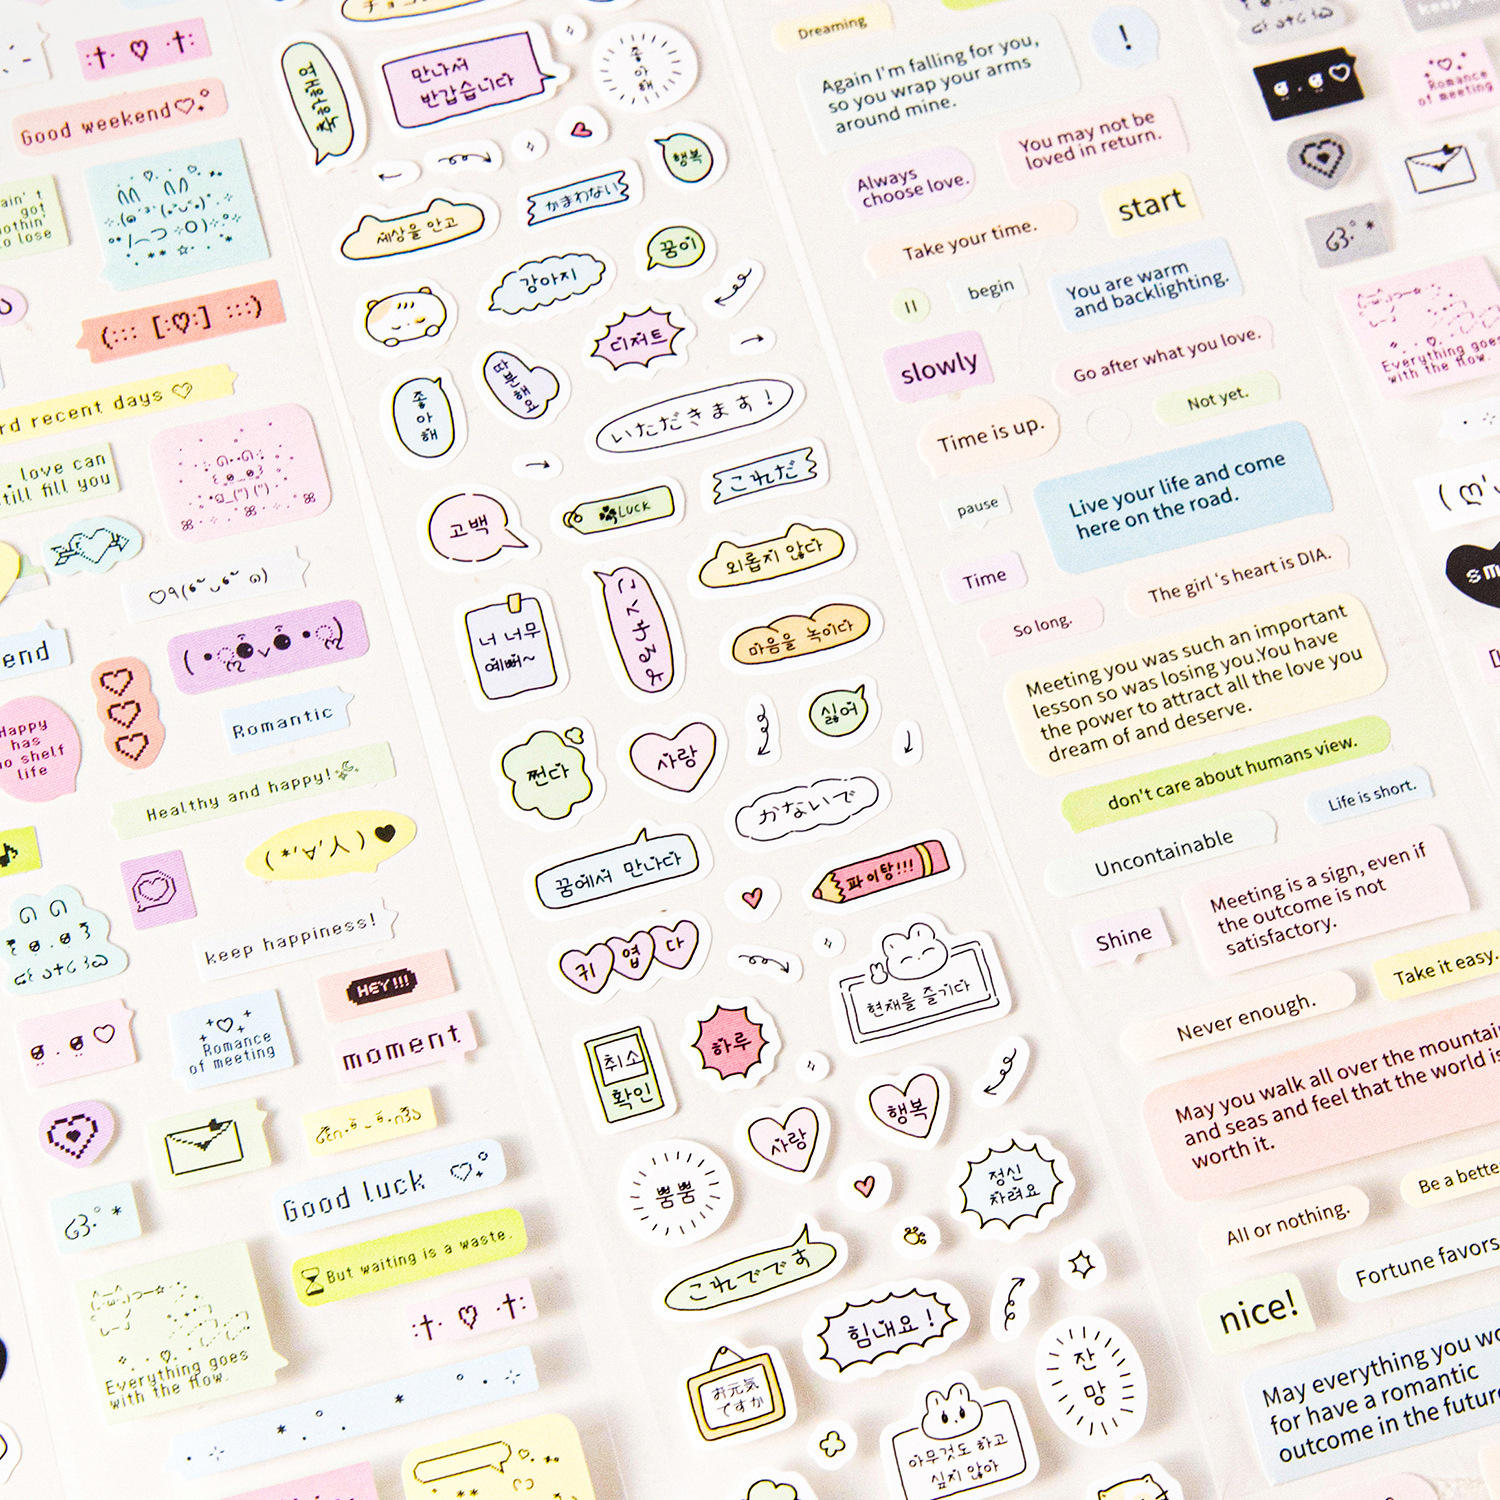 Good weekend
ain' t
got
nothin'
to lose
rd recent days
love can
till fill you
end
Romantic
Happy
has
no shelf
life
Healthy and happy!
keep happiness!
HEY!!!
Romance
of meeting
moment
Good luck
But waiting is a waste.
Everything goes
with the flow.
착하해여
만나서
반갑습니다
좋
아
해
행복
세상을 안고
かまわない
강아지
꿈이
디저트
좋
아
해
いただきます！
고백
LUCK
これだ
외롭지 않다
너 너무
예뻐~
마음을 녹이다
싫어
쩐다
사랑
かないで
꿈에서 만나다
파이팅!!!
귀엽다
현재를 즐기다
취소
확인
하루
사랑
행복
뿜뿜
정신
차려요
これでです
힘내요!
お元気
ですか
잔
망
아무것도 하고
싶지 않아
Dreaming
!
Again I'm falling for you,
so you wrap your arms
around mine.
You may not be
loved in return.
Always
choose love.
start
Take your time.
begin
You are warm
and backlighting.
slowly
Go after what you love.
Not yet.
Time is up.
pause
Live your life and come
here on the road.
Time
The girl 's heart is DIA.
So long.
Meeting you was such an important
lesson so was losing you.You have
the power to attract all the love you
dream of and deserve.
don't care about humans view.
Life is short.
Uncontainable
Meeting is a sign, even if
the outcome is not
satisfactory.
Shine
Take it easy.
Never enough.
May you walk all over the mountai
and seas and feel that the world is
worth it.
Be a bette
All or nothing.
Fortune favors
nice!
May everything you wo
for have a romantic
outcome in the future
Romance
of meeting
Everything goes
with the flow.